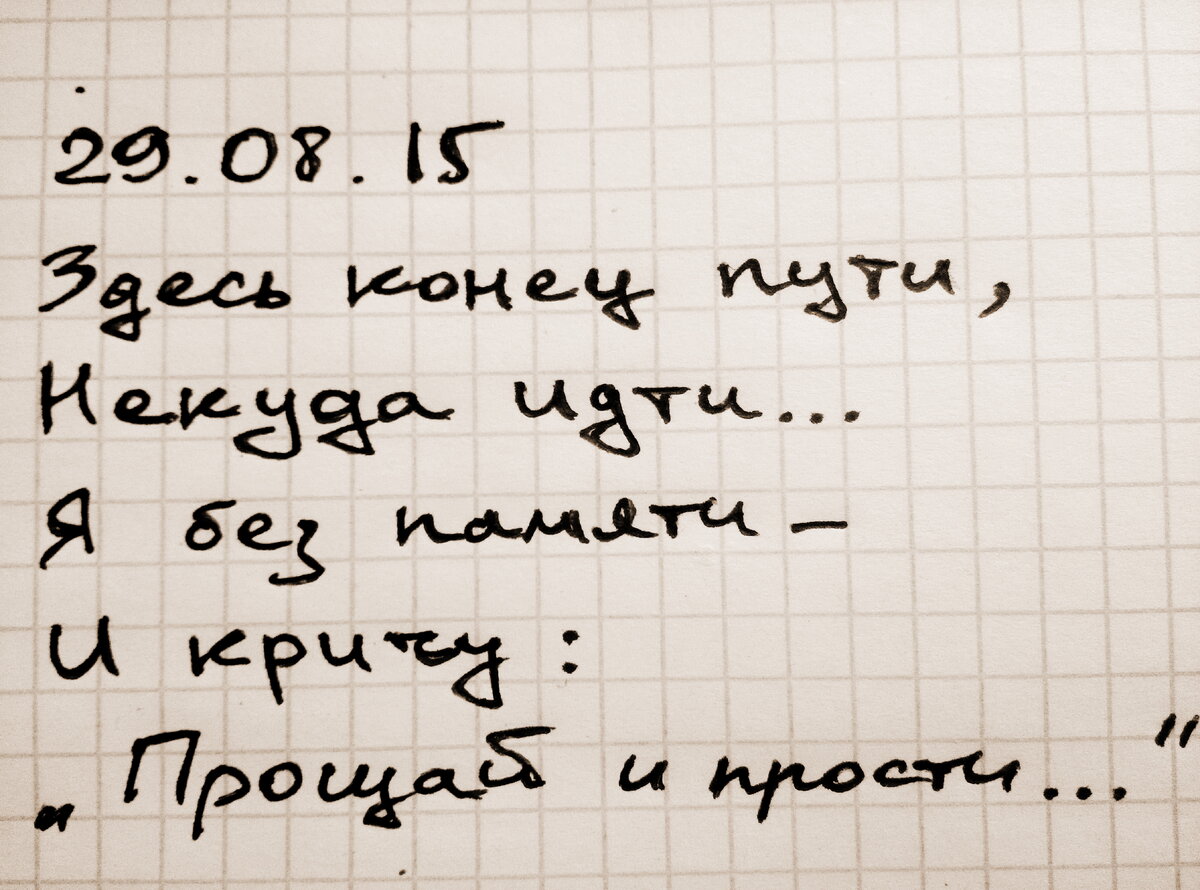 29.08.15
Здесь конец пути,
Некуда идти...
Я без памяти –
И кричу:
„Прощай и прости..."